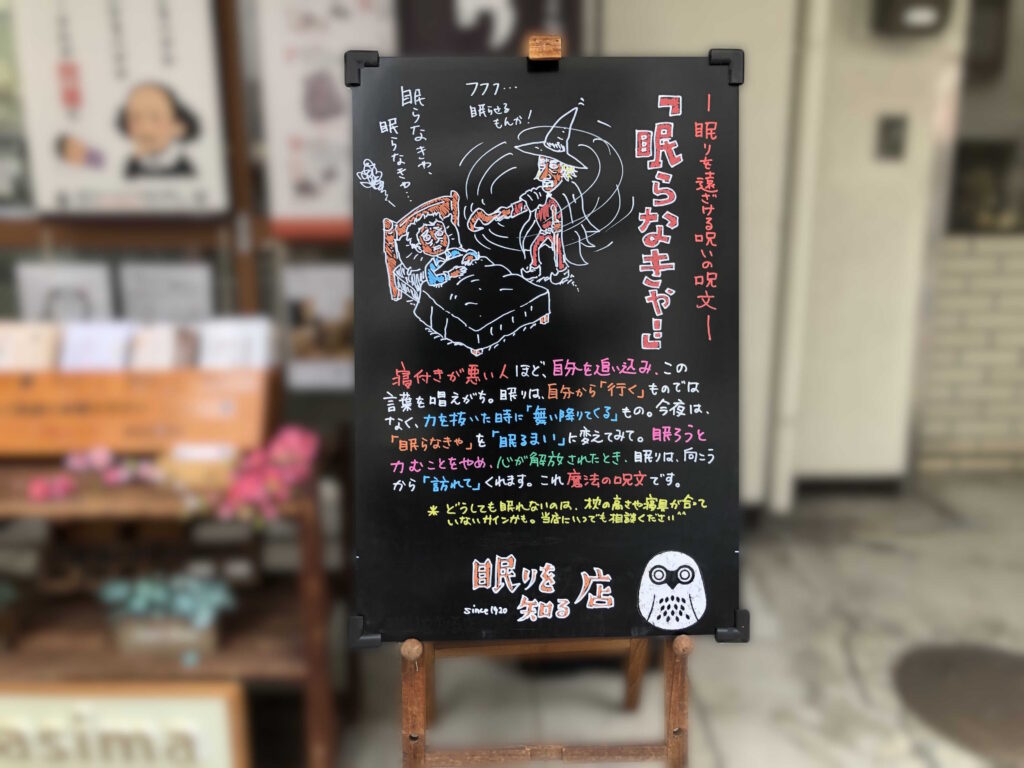 ー眠りを遠ざける呪いの呪文ー
「眠らなきゃ…」
フフフ…
眠らせる
もんか！
眠らなきゃ、
眠らなきゃ…
寝付きが悪い人ほど、自分を追い込み、この
言葉を唱えがち。眠りは、自分から「行く」ものでは
なく、力を抜いた時に「舞い降りてくる」もの。今夜は、
「眠らなきゃ」を「眠るまい」に変えてみて。眠ろうと
力むことをやめ、心が解放されたとき、眠りは、向こう
から「訪れて」くれます。これ魔法の呪文です。
＊どうしても眠れないのは、枕の高さや寝具が合って
いないサインかも。当店にいつでも相談ください
眠りを
知る
店
since 1920
asima